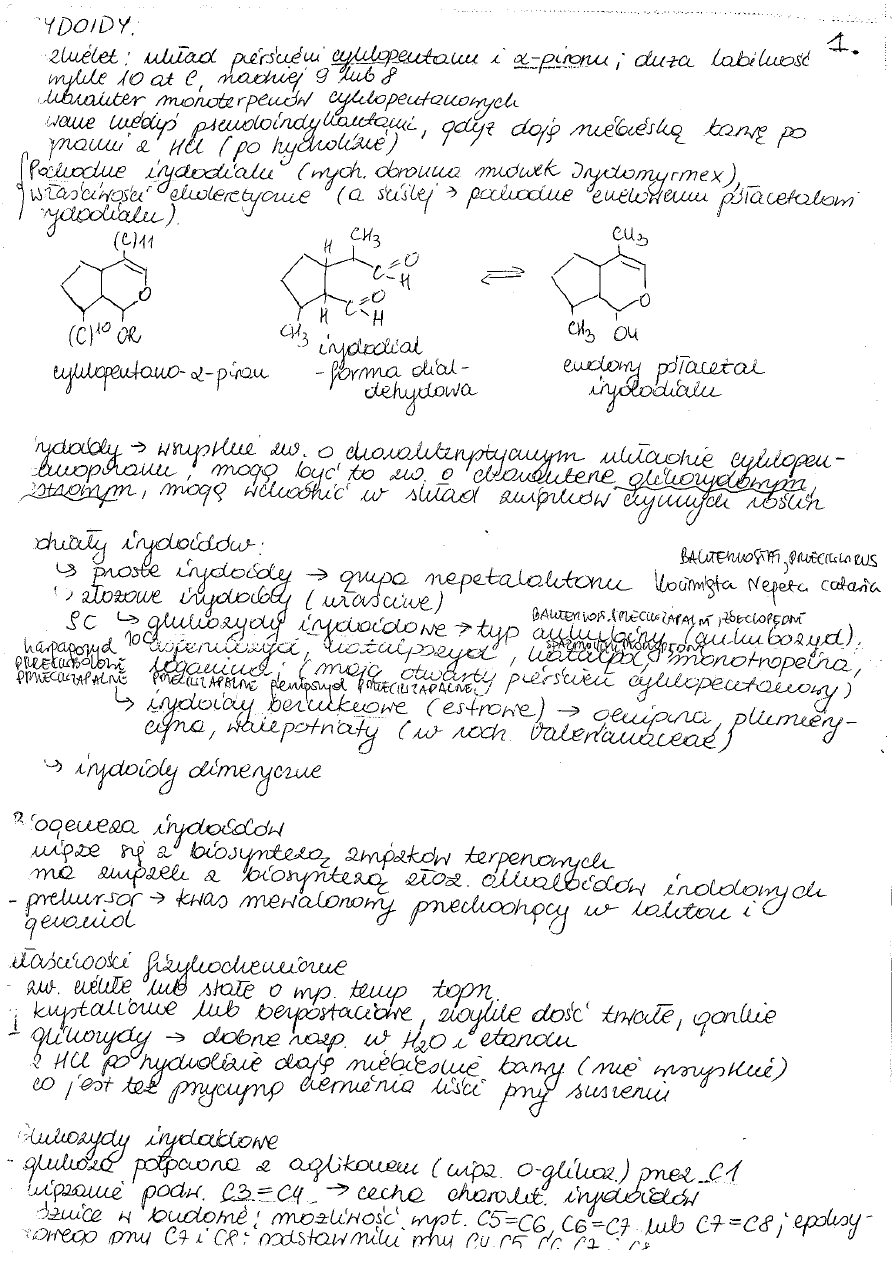 YDOIDY:
1.
szkielet: układ pierścieni cyklopentanu i α-piranu; duża labilność
zwykle 10 at C, rzadziej 9 lub 8
charakter monoterpenów cyklopentanowych
zwane kiedyś pseudoindykanami, gdyż dają niebieską barwę po
ogrzaniu z HCl (po hydrolizie)
Pochodne irydodialu (wych. obronna mrówek Irydomyrmex),
właściwości choleretyczne (a ściślej → pochodne enolowemu półacetalowi
irydodialu).
(C)11
O
(C)10 OR
cyklopentano-α-piran
CH3
H
C=O
H
C=O
H
H
CH3
irydodial
-forma dial-
dehydowa
⇌
CH3
O
CH3 OH
enolowy półacetal
irydodialu
irydoidy → wszystkie zw. o charakterystycznym układzie cyklopen-
tanopiranu, mogą być to zw. o charakterze glikozydowym,
estrowym, mogą wchodzić w skład związków czynnych roślin
działy irydoidów:
BAKTERIOSTAT, PRZECIWWIRUS
↳ proste irydoidy → grupa nepetalaktonu Kocimiętka Nepeta cataria
↳ złożowe irydoidy (właściwe)
BAKTERIOB, PRZECIWZAPALNE, ŻÓŁCIOPĘDNE
9C ↳ glukozydy irydoidowe → typ aukubiny (aukubozyd),
SPAZMOLIT, MOCZOPĘDNE
harpagozyd 10C asperulozyd, katalpozyd, katalpol, monotropeina,
PRZECIWBÓLOWE
PRZECIWZAPALNE
loganina; (mają otwarty pierścień cyklopentanowy)
PRZECIWZAPALNE geniposyd PRZECIWZAPALNE
↳ irydoidy bezcukrowe (estrowe) → genipina, plumiery-
cyna, walepotriaty (w rodz. Valerianaceae)
↳ irydoidy dimeryczne
Biogeneza irydoidów
wiąże się z biosyntezą związków terpenowych
ma związek z biosyntezą złoż. alkaloidów indolowych
- prekursor → kwas mewalonowy przechodzący w lakton i
geraniol
właściwości fizykochemiczne
- zw. ciekłe lub stałe o np. temp topn.
krystaliczne lub bezpostaciowe, zwykle dość trwałe, gorzkie
- glikozydy → dobrze rozp. w H2O i etanolu
z HCl po hydrolizie dają niebieskie barwy (nie wszystkie)
co jest też przyczyną ciemnienia liści przy suszeniu
Glukozydy irydoidowe
- glukoza połączona z aglikonem (wiąz. O-glikoz.) przez C1
wiązanie podw. C3=C4 → cecha charakt. irydoidów
różnice w budowie; możliwość wyst. C5=C6, C6=C7 lub C7=C8; epoksy-
dowego przy C7 i C8; podstawniki przy C4 C5 C6 C7 i C8